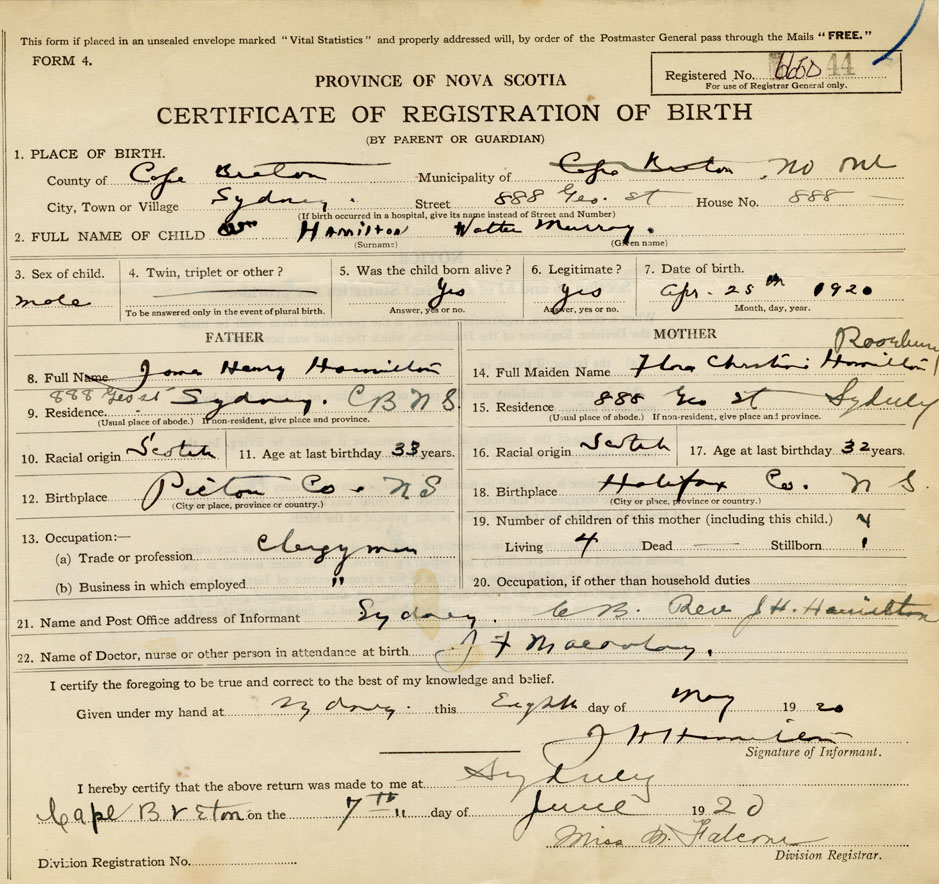 This form if placed in an unsealed envelope marked "Vital Statistics" and properly addressed will, by order of the Postmaster General pass through the Mails "FREE."
FORM 4.
PROVINCE OF NOVA SCOTIA
Registered No. 44
For use of Registrar General only.
CERTIFICATE OF REGISTRATION OF BIRTH
(BY PARENT OR GUARDIAN)
1. PLACE OF BIRTH.
County of Cape Breton Municipality of Cape Breton
City, Town or Village Sydney. Street 888 Geo. St House No. 888
(If birth occurred in a hospital, give its name instead of Street and Number)
2. FULL NAME OF CHILD Hamilton Walter Murray.
(Surname) (Given name)
3. Sex of child. 4. Twin, triplet or other? 5. Was the child born alive? 6. Legitimate? 7. Date of birth.
male Yes Yes Apr. 25th 1920
To be answered only in the event of plural birth. Answer, yes or no. Answer, yes or no. Month, day, year.
FATHER
8. Full Name James Henry Hamilton
888 Geo st Sydney. C B N S.
9. Residence.
(Usual place of abode.) If non-resident, give place and province.
10. Racial origin Scotch 11. Age at last birthday 33 years.
12. Birthplace Pictou Co. N S
(City or place, province or country.)
13. Occupation:—
(a) Trade or profession Clergyman
(b) Business in which employed "
MOTHER
14. Full Maiden Name Flora Christine Hamilton
15. Residence 888 Geo St Sydney
(Usual place of abode.) If non-resident, give place and province.
16. Racial origin Scotch 17. Age at last birthday 32 years.
18. Birthplace Halifax Co. N S.
(City or place, province or country.)
19. Number of children of this mother (including this child.) 4
Living 4 Dead — Stillborn
20. Occupation, if other than household duties
21. Name and Post Office address of Informant Sydney. C. B. Rev J.H. Hamilton
22. Name of Doctor, nurse or other person in attendance at birth J F Macaulay.
I certify the foregoing to be true and correct to the best of my knowledge and belief.
Given under my hand at Sydney. this Eighth day of May 1920
J H Hamilton
Signature of Informant.
I hereby certify that the above return was made to me at Sydney
Cape Breton on the 7th day of June 1920
Miss M. Falconer
Division Registrar.
Division Registration No.